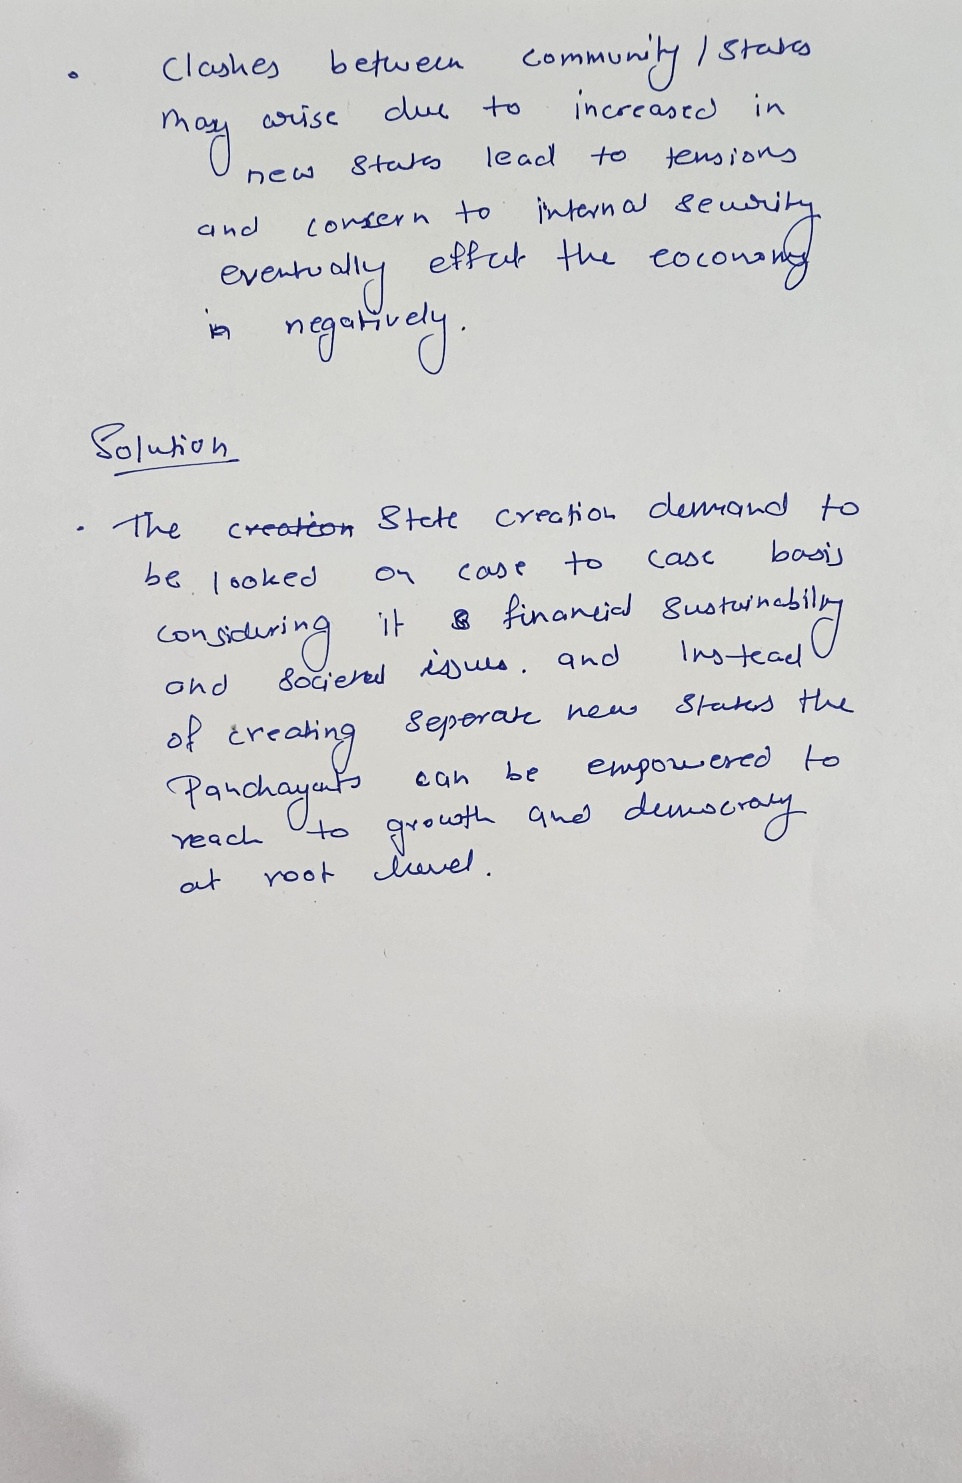 • Clashes between community / States
may arise due to increased in
new states lead to tensions
and consern to internal security
eventually effect the eoconomy
in negatively.
Solution
• The creation State creation demand to
be looked on case to case basis
considering it financial sustainability
and societal issues. and Instead
of creating seperate new states the
Panchayats can be empowered to
reach to growth and democracy
at root level.